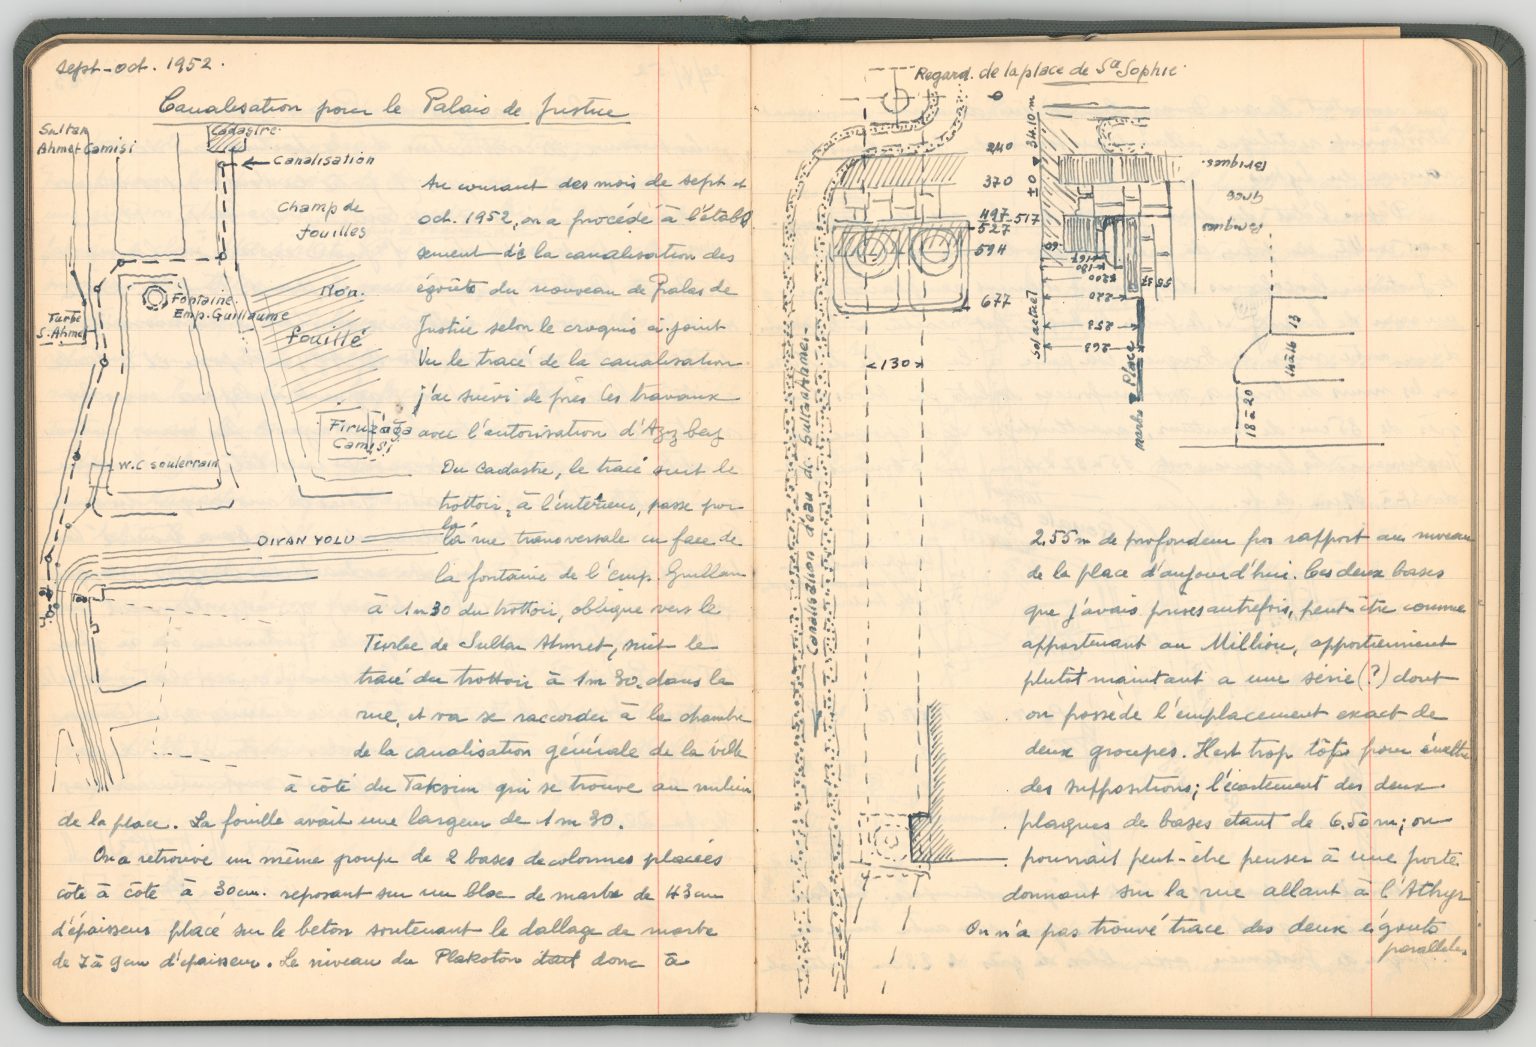 sept-oct. 1952.
Canalisation pour le Palais de Justice
Sultan
Ahmet Camisi
Cadastre.
Canalisation
Champ de
fouilles
Non.
fouillé
Fontaine.
Emp. Guillaume
Turbe
S. Ahmet
Firuzağa
Camisi
W.C souterrain
DIVAN YOLU
Au courant des mois de sept et
oct. 1952, on a procédé à l'établis
sement de la canalisation des
égoûts du nouveau de Palais de
Justice selon le croquis ci-joint
Vu le tracé de la canalisation
j'ai suivi de près les travaux
avec l'autorisation d'Aziz bey
Du Cadastre, le tracé suit le
trottoir, à l'intérieur, passe par
la rue transversale en face de
la fontaine de l'emp. Guillau
à 1m30 du trottoir, oblique vers le
Turbe de Sultan Ahmet, suit le
tracé du trottoir à 1m30. dans la
rue, et va se raccorder à la chambre
de la canalisation générale de la ville
à côté du Taksim qui se trouve au milieu
de la place. La fouille avait une largeur de 1m30.
On a retrouvé un même groupe de 2 bases de colonnes placées
côte à côte à 30cm. reposant sur un bloc de marbre de 43cm
d'épaisseur placé sur le beton soutenant le dallage de marbre
de 7 à 9cm d'épaisseur. Le niveau du Plakoton était donc à
Regard. de la place de Ste Sophie.
0
240
370
497-517
527
594
677
130
Canalisation d'eau de Sultan Ahmet.
±0 34.10m
Sol actuel
Briques.
gros
167
180
200
220
253
263
60
55
37
marbre Place
13
14 à 16
18 à 20
2.55m de profondeur par rapport au niveau
de la place d'aujourd'hui. Ces deux bases
que j'avais prises autrefois, peut-être comme
appartenant au Million, appartiennent
plutôt maintant a une série (?) dont
on possède l'emplacement exact de
deux groupes. Il est trop tôt pour émettre
des suppositions; l'écartement des deux
plaques de bases etant de 6.50m; on
pourrait peut-être penser à une porte
donnant sur la rue allant à l'Athyr
On n'a pas trouvé trace des deux égouts
parallèles.